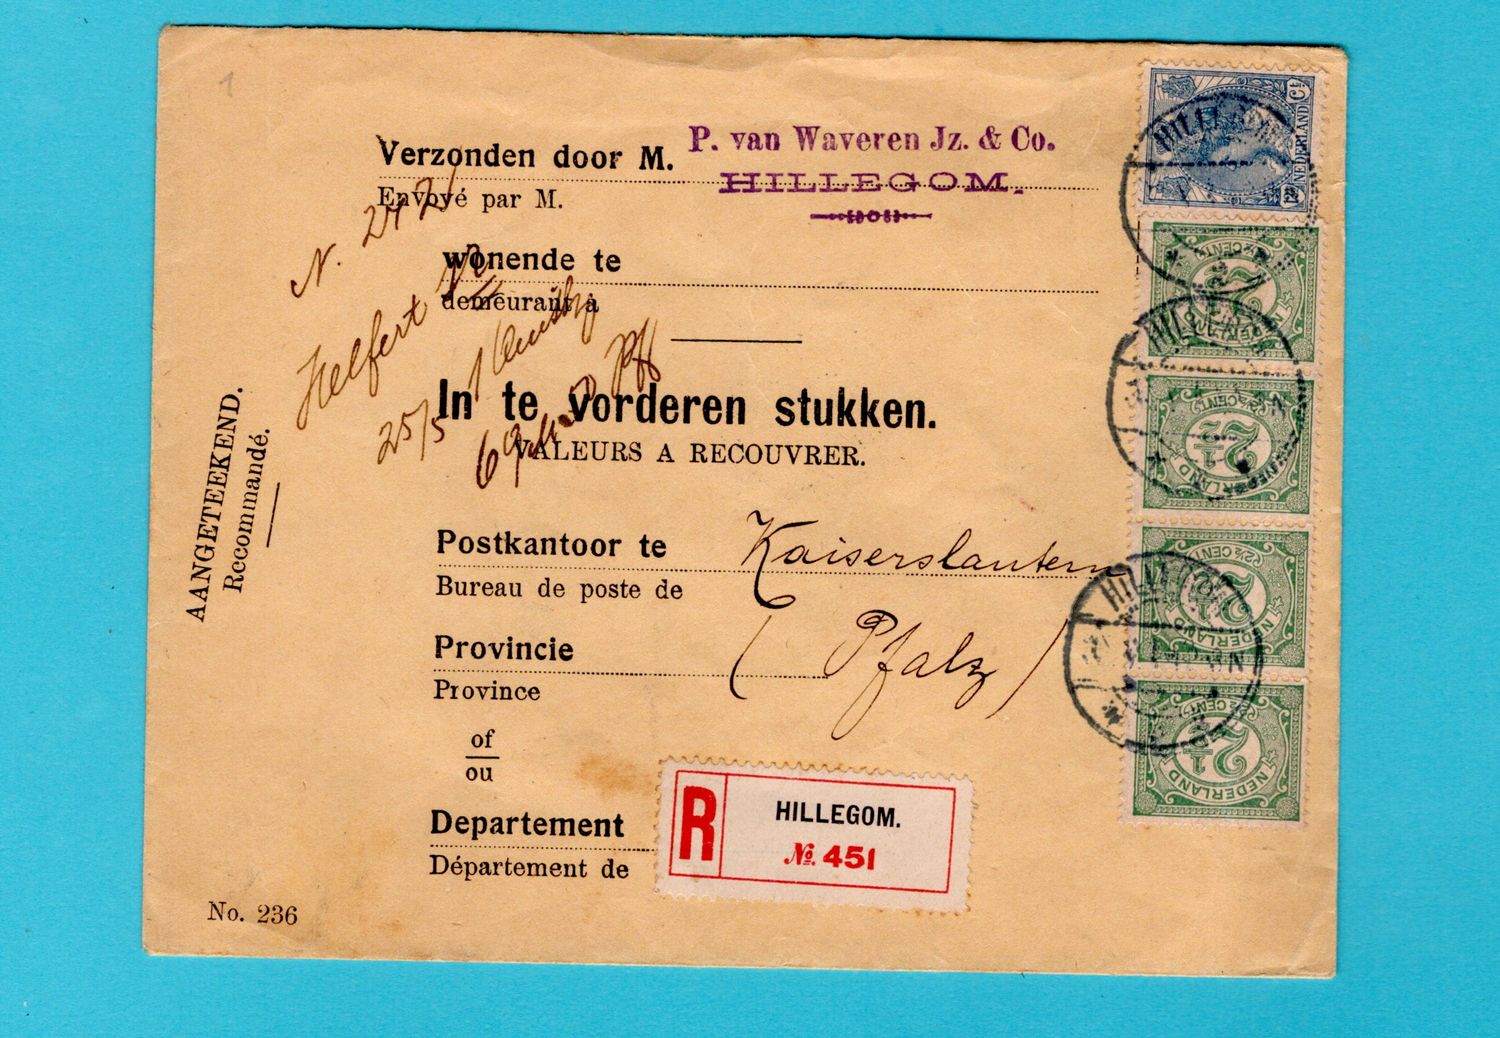 1
Verzonden door M. P. van Waveren Jz. & Co.
Envoyé par M. HILLEGOM.
wonende te
demeurant à
N. 2421
Helfert
25/5
6
In te vorderen stukken.
VALEURS A RECOUVRER.
AANGETEEKEND.
Recommandé.
Postkantoor te Kaiserslautern
Bureau de poste de
Provincie ( Pfalz )
Province
of
ou
Departement
Département de
R HILLEGOM.
No. 451
No. 236
NEDERLAND
Ct
HILLEGOM
2½ CENT
NEDERLAND
2½
2½ CENT
NEDERLAND
2½
HILLEGOM
2½ CENT
NEDERLAND
2½
HILLEGOM
2½ CENT
NEDERLAND
2½